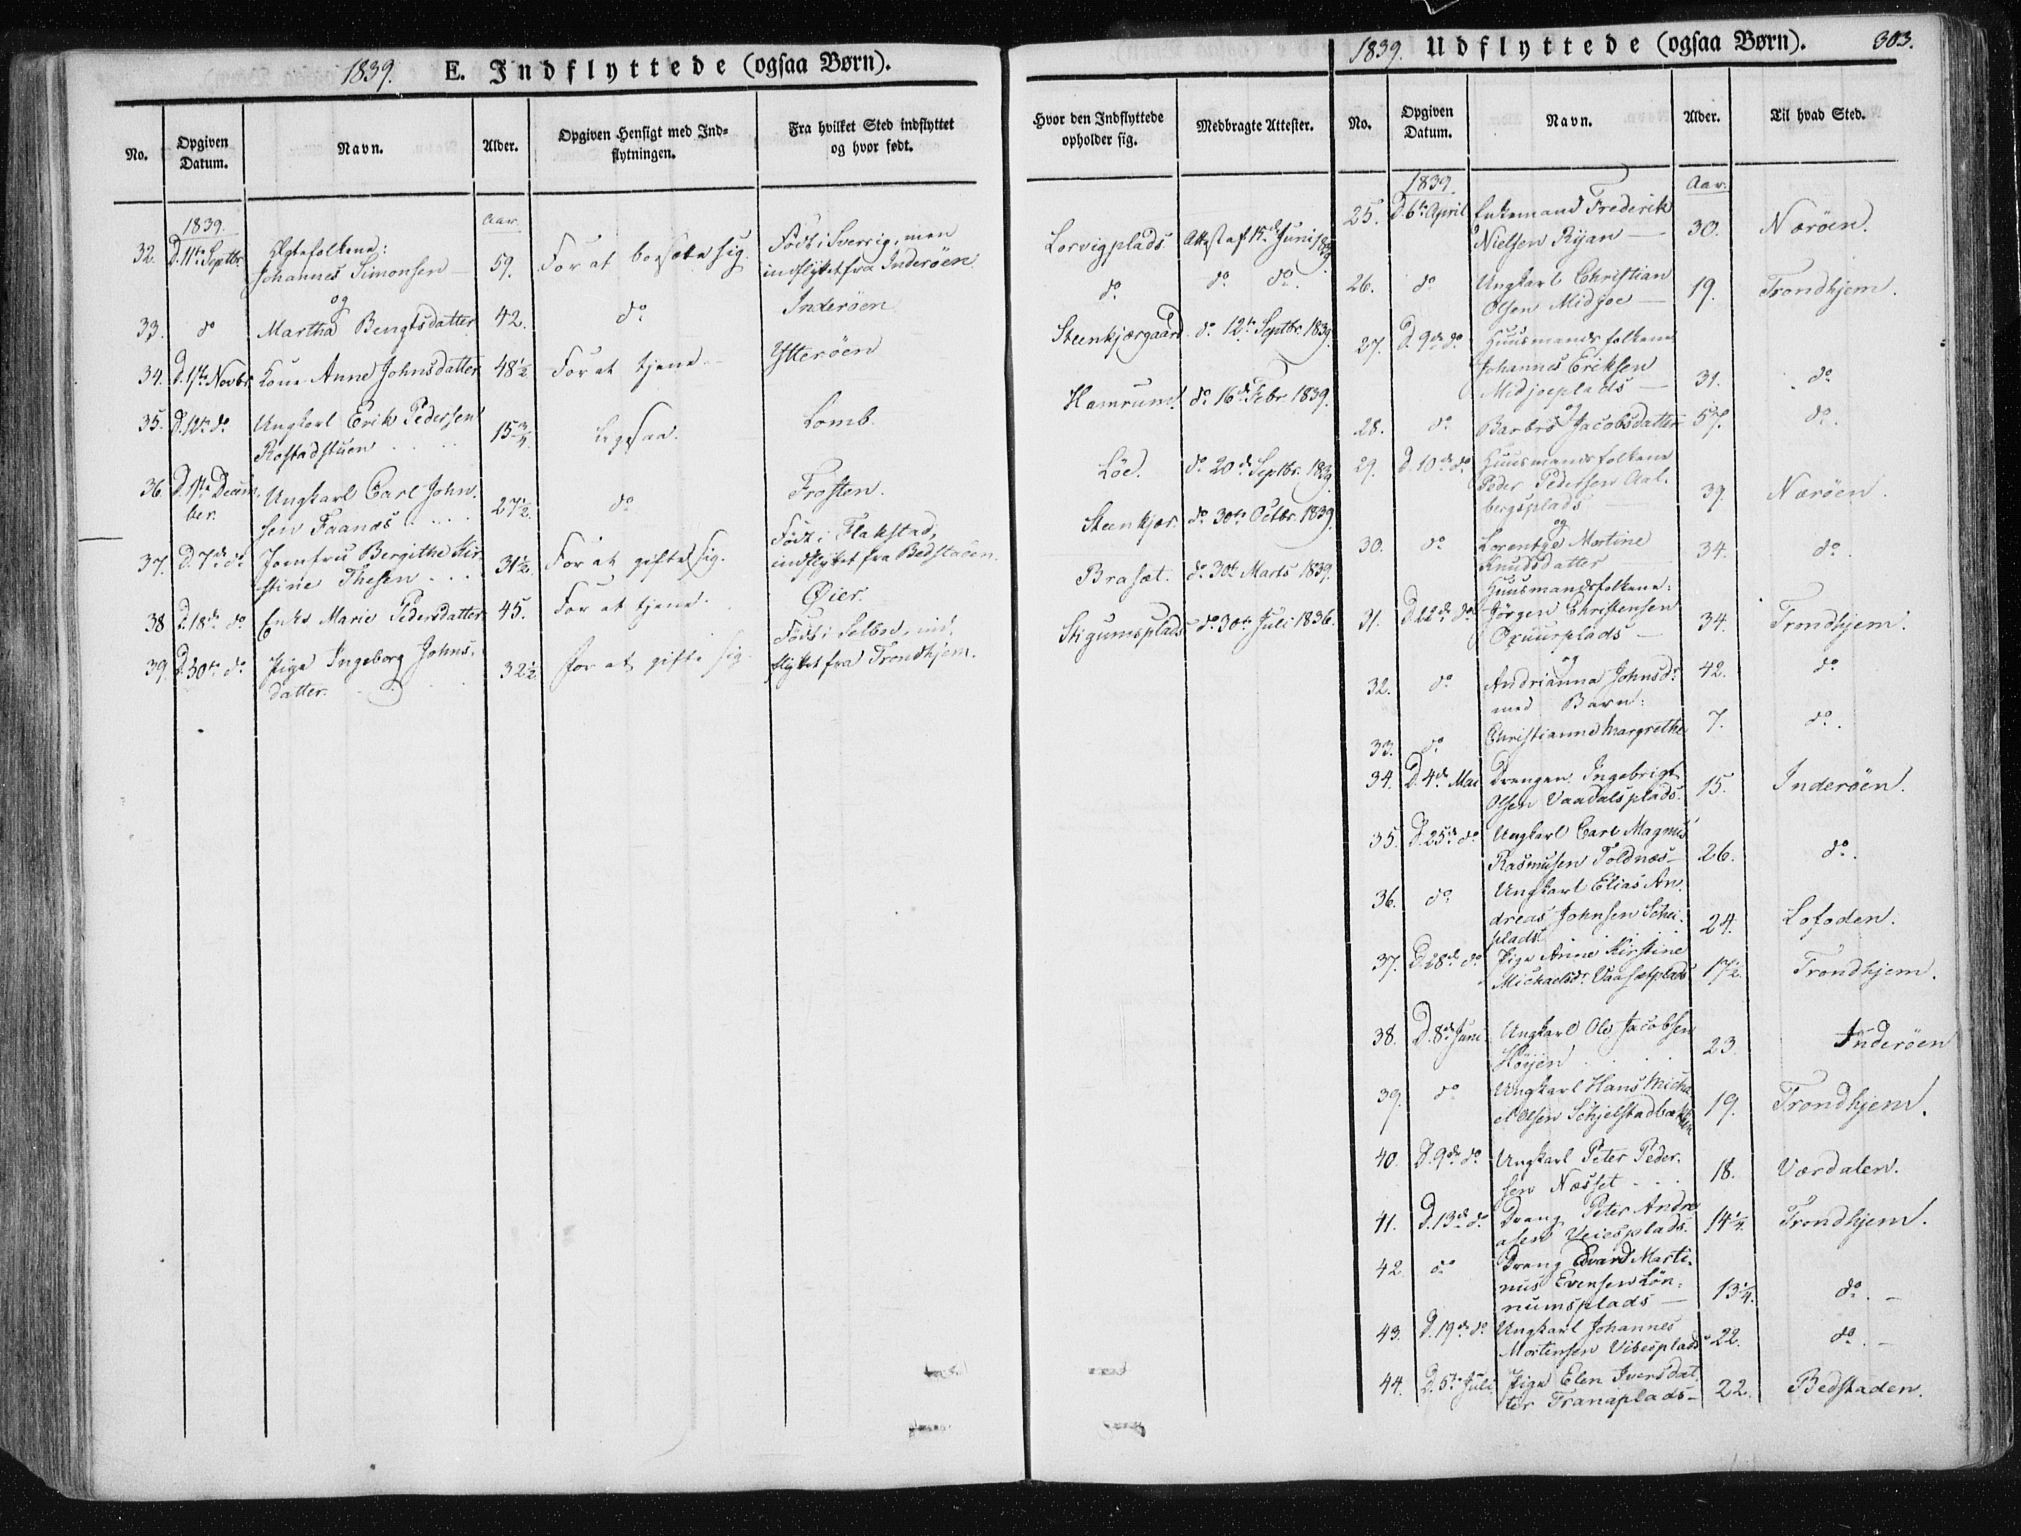 1839. E. Indflyttede (ogsaa Børn).
No. Opgiven Datum. Navn. Alder. Opgiven Hensigt med Ind= flytningen. Fra hvilket Sted indflyttet og hvor født. Hvor den Indflyttede opholder sig. Medbragte Attester.
1839. Aar
32. D. 11te Septbr. Ægtefolkene: Johannes Simonsen — 59. For at bosætte sig. Født i Sverrig, men indflyttet fra Inderöen Lorvigplads Attest af 15de Juni 1839.
og
33. do Martha Bengtsdatter 42. do Inderöen do. do do.
34. D. 1ste Novbr. Kone Anne Johnsdatter 48 1/2. For at tjene Ytteröen Steenkjærgaard do. 12te Septbr. 1839.
35. D. 10de do Ungkarl Erik Pedersen Rostadstuen 15 3/4. Ligesaa. Lomb. Hamrum. do. 16de Febr. 1839.
36. D. 1ste Decem- ber. Ungkarl Carl John- sen Faanæs 27 1/2. do Frosten. Löe. do. 20de Septbr. 1839
37. D. 7de do Jomfru Bergithe Kir- stine Thesen 31 1/2. For at gifte sig. Født i Flakstad, indflyttet fra Bedstaden. Steenkjær. do. 30te Octbr. 1839.
38 D. 18de do Enke Marie Pedersdatter 45. For at tjene. Øier. Braset. do. 30te Marts 1839.
39. D. 30te do Pige Ingeborg Johns- datter. 32 1/2 for at gifte sig Født i Selbo, ind- flyttet fra Trondhjem. Stigumsplads do 30te Juli 1836.
1839. Udflyttede (ogsaa Børn). 303.
No. Opgiven Datum. Navn. Alder. Til hvad Sted.
1839. Aar.
25. D. 6te April Enkemand Frederik
Nielsen Ryan — 30. Næröen.
26. do Ungkarl Christian
Olsen Midjoe — 19. Trondhjem.
27. D. 9de do Huusmandsfolkene
Johannes Eriksen
Midjoeplads — 31. do
og
28. do Barbro Jacobsdatter 57. do.
29. D. 10de do Huusmandsfolkene
Peder Pedersen Aal-
bergsplads 39 Næröen.
og
30. do Lorentze Martine
Knudsdatter 34. do.
Huusmandsfolkene:
31. D. 22de do Jörgen Christensen
Oxuurplads — 34. Trondhjem.
og
32. do Andrianna Johnsdr. 42. do
med Barn:
33. do. Christianne Margrethe 7. do.
34. D. 4de Mai Drengen Ingebrigt
Olsen Vaadalsplads. 15. Inderöen.
35. D. 25de do Ungkarl Carl Magnus
Rasmusen Toldnæs — 26. do.
36. do Ungkarl Elias An-
dreas Johnsen Schei-
plads 24. Lofoden.
37. D. 28de do Pige Anne Kirstine
Michaelsdr. Vaasetplads 17 1/2. Trondhjem.
38. D. 8de Juni Ungkarl Ole Jacobsen
Höyen 23. Inderöen
39. do Ungkarl Hans Micha-
el Olsen Schjelstadbakken 19. Trondhjem.
40. D. 9de do Ungkarl Peter Peder-
sen Næsset 18. Værdalen.
41. D. 13de do Dreng Peter Andre-
asen Veiesplads. 14 1/4. Trondhjem.
42. do Dreng Edvard Marti-
nus Evensen Lön-
numsplads — 13 1/4. do. —
43. D. 19de do Ungkarl Johannes
Mortensen Vibesplads 22. do. —
44. D. 5te Juli Pige Elen Iversdat-
ter Tranaplads — 22. Bedstaden.